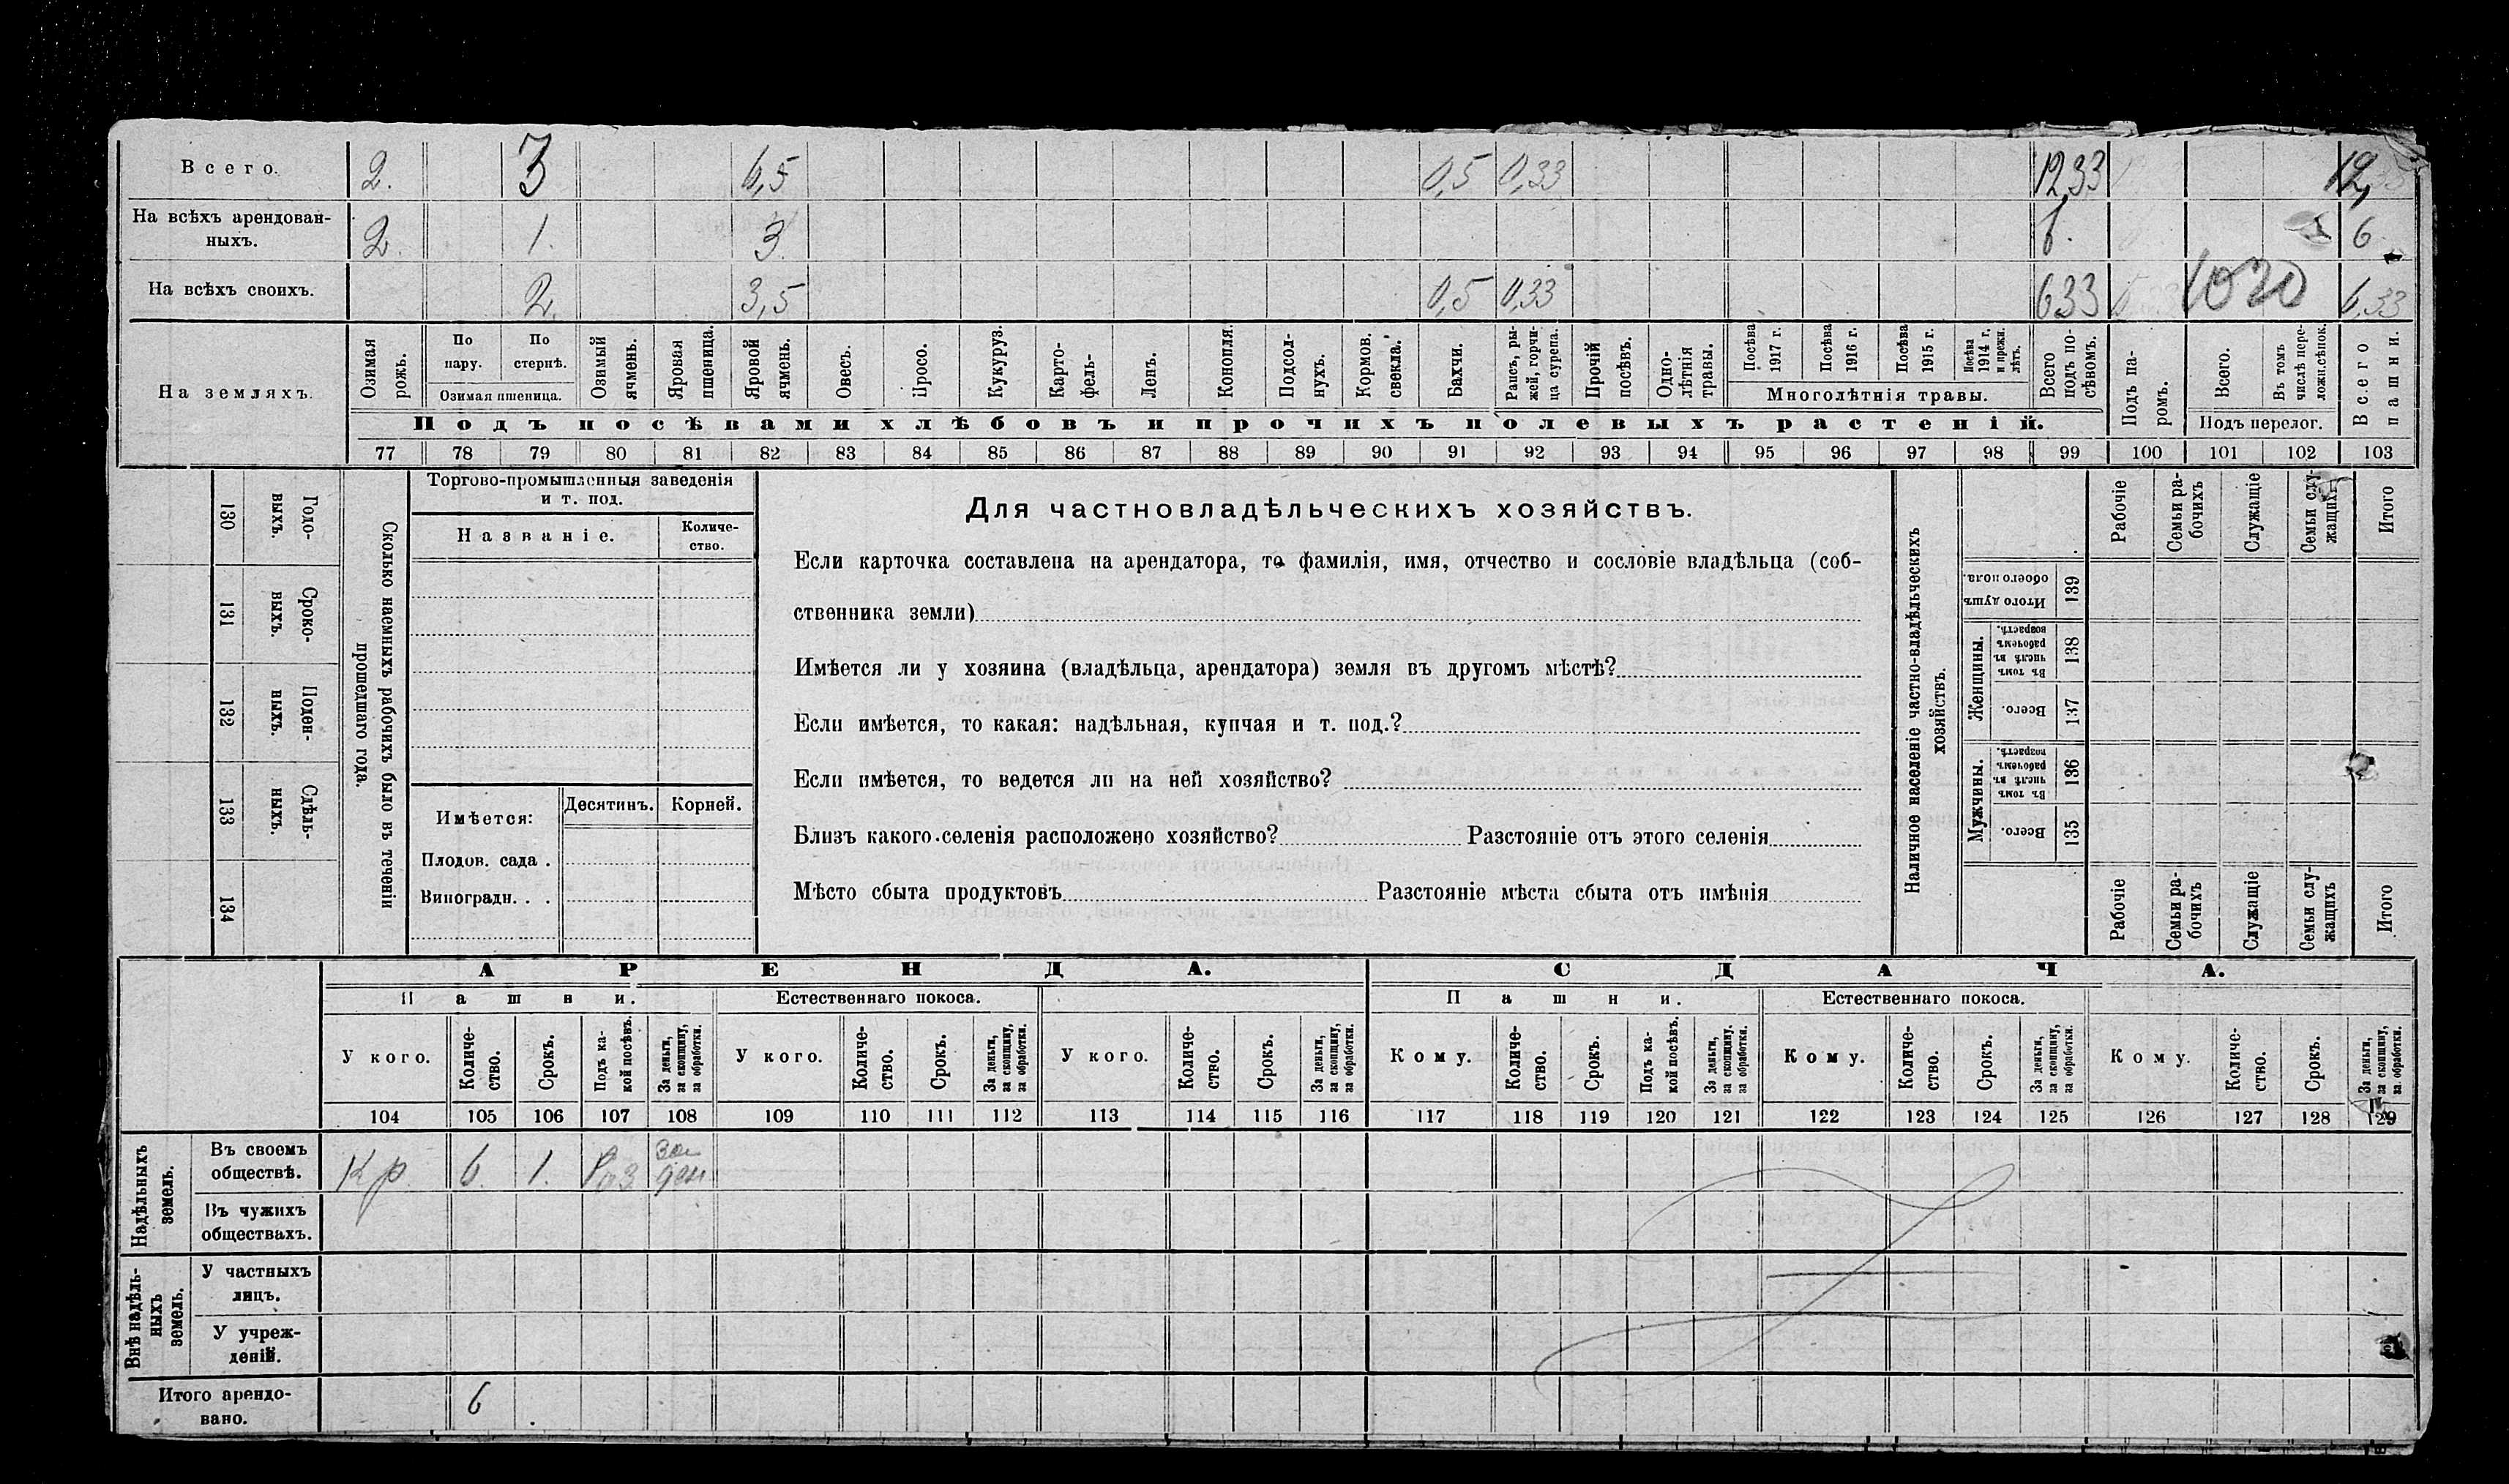 Всего. 2. 3 6,5 0,5 0,33 12,33 12,33
На всѣхъ арендован-
ныхъ. 2. 1. 3 6. 6
На всѣхъ своихъ. 2. 3,5 0,5 0,33 633 1020 6,33
На земляхъ.
Озимая рожь.
По пару.
По стернѣ.
Озимая пшеница.
Озимый ячмень.
Яровая пшеница.
Яровой ячмень.
Овесъ.
Просо.
Кукуруз.
Карто-
фель-
Ленъ.
Конопля.
Подсол-
нухъ.
Кормов. свекла.
Бахчи.
Рапсъ, ры-
жей, горчи-
ца сурепа.
Прочій посѣвъ.
Одно-
лѣтнія травы.
Посѣва 1917 г.
Посѣва 1916 г.
Посѣва 1915 г.
Посѣва 1914 г. и прежн. лѣтъ.
Многолѣтнія травы.
Всего подъ по-
сѣвомъ.
Подъ посѣвами хлѣбовъ и прочихъ полевыхъ растеній.
Подъ па-
ромъ.
Всего.
Въ томъ числѣ пере-
ложн.сѣнок.
Подъ перелог.
Всего пашни.
77 78 79 80 81 82 83 84 85 86 87 88 89 90 91 92 93 94 95 96 97 98 99 100 101 102 103
130 Годо-
выхъ.
131 Сроко-
выхъ.
132 Поден-
ныхъ.
133 Сдѣль-
ныхъ.
134
Сколько наемныхъ рабочихъ было въ теченіи
прошедшаго года.
Торгово-промышленныя заведенія
и т. под.
Названіе.
Количе-
ство.
Имѣется:
Десятинъ.
Корней.
Плодов. сада .
Виноградн. . .
Для частновладѣльческихъ хозяйствъ.
Если карточка составлена на арендатора, то фамилія, имя, отчество и сословіе владѣльца (соб-
ственника земли)
Имѣется ли у хозяина (владѣльца, арендатора) земля въ другомъ мѣстѣ?
Если имѣется, то какая: надѣльная, купчая и т. под.?
Если имѣется, то ведется ли на ней хозяйство?
Близъ какого селенія расположено хозяйство? Разстояніе отъ этого селенія
Мѣсто сбыта продуктовъ Разстояніе мѣста сбыта отъ имѣнія
Наличное населеніе частно-владѣльческихъ
хозяйствъ.
Рабочіе
Семьи ра-
бочихъ
Служащіе
Семьи слу-
жащихъ
Итого
Итого душъ обоего пола. 139
Женщины.
Въ томъ числѣ въ рабочемъ возрастѣ. 138
Всего. 137
Мужчины.
Въ томъ числѣ въ рабочемъ возрастѣ. 136
Всего. 135
Рабочіе
Семьи ра-
бочихъ
Служащіе
Семьи слу-
жащихъ
Итого
АРЕНДА. СДАЧА.
Пашни. Естественнаго покоса. Пашни. Естественнаго покоса.
У кого.
Количе-
ство.
Срокъ.
Подъ ка-
кой посѣвъ.
За деньги, за скопщину, за обработки.
У кого.
Количе-
ство.
Срокъ.
За деньги, за скопщину, за обработки.
У кого.
Количе-
ство.
Срокъ.
За деньги, за скопщину, за обработки.
Кому.
Количе-
ство.
Срокъ.
Подъ ка-
кой посѣвъ.
За деньги, за скопщину. за обработки.
Кому.
Количе-
ство.
Срокъ.
За деньги, за скопщину, за обработки.
Кому.
Количе-
ство.
Срокъ.
За деньги, за скопщину, за обработки.
104 105 106 107 108 109 110 111 112 113 114 115 116 117 118 119 120 121 122 123 124 125 126 127 128 129
Надѣльныхъ
земель.
Въ своемъ
обществѣ. Кр. 6. 1. Роз за ден
Въ чужихъ
обществахъ.
Внѣ надѣль-
ныхъ
земель.
У частныхъ
лицъ.
У учреж-
деній.
Итого арендо-
вано. 6